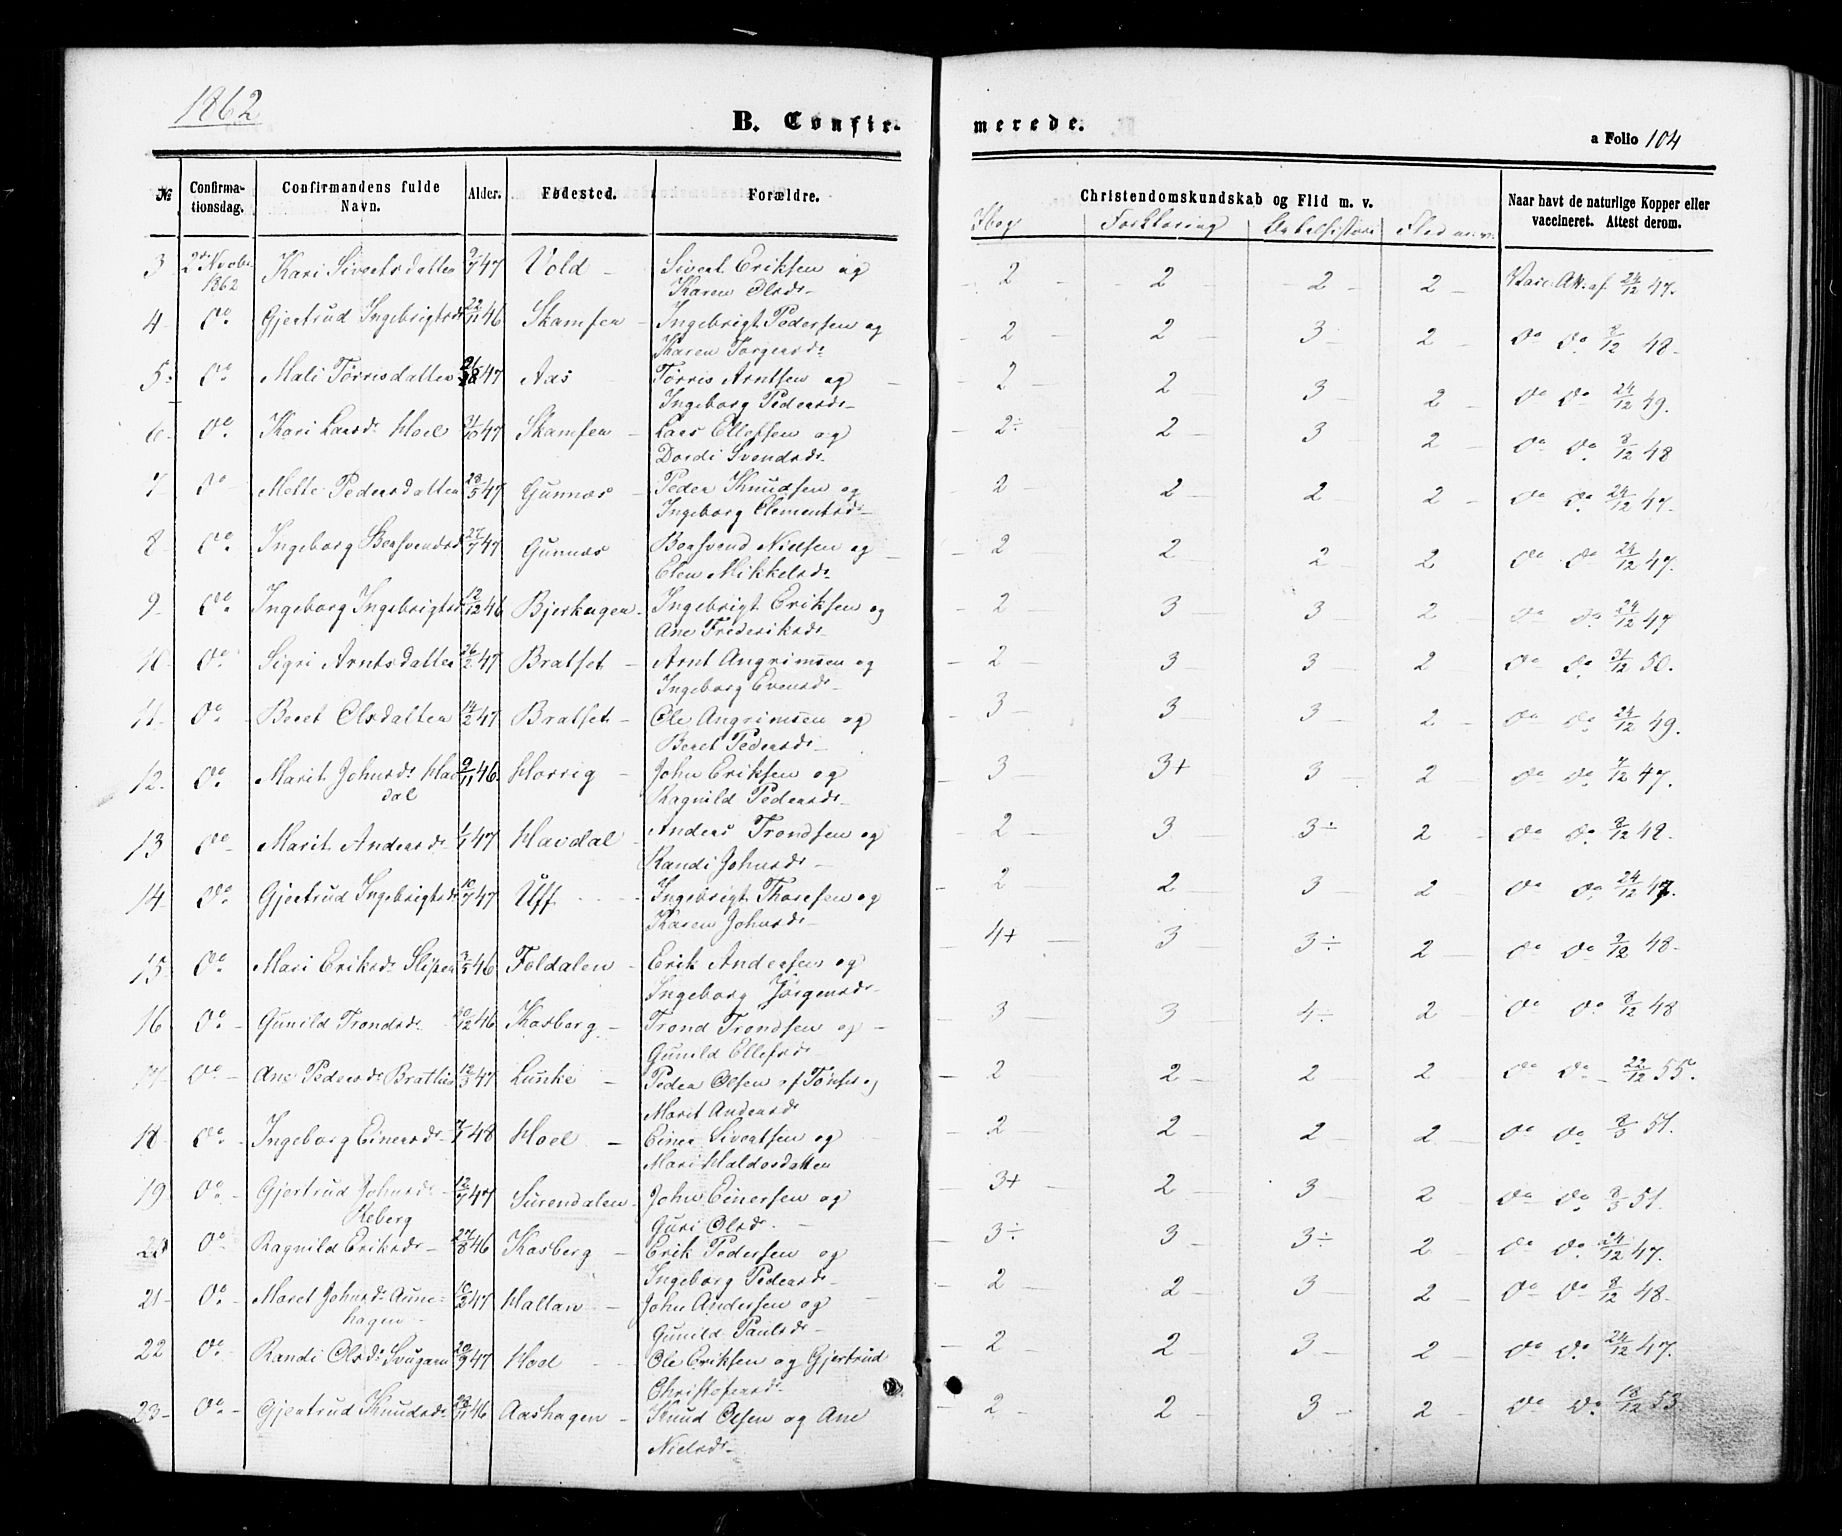 1862
B. Confirmerede.
a Folio 104
№ Confirmationsdag. Confirmandens fulde Navn. Alder. Fødested. Forældre. Christendomskundskab og Flid m. v. Naar havt de naturlige Kopper eller vaccineret. Attest derom.
Forklaring
3 2 Novbr 1862 Kari Sivertsdatter 47 Vold Sivert Eriksen og 2 2 2 2 Vacc. Att. af 24/12 47.
Karen Olsdr
4 Do Gjertrud Ingebrigtsdr 22/11 46 Skamfer Ingebrigt Pedersen og 2 2 3 2 Do Do 8/12 48
Karen Torgersdr
5 Do Mali Törrisdatter 47 Aas Törris Arntsen og 2 2 3 2 Do Do 24/12 49.
Ingeborg Pedersdr
6 Do Kari Larsdr Hoel 47 Skamfer Lars Ellefsen og 2÷ 2 3 2 Do Do 8/12 48
Dordi Svendsdr
7 Do Mette Pedersdatter 28/5 47 Gunnes Peder Knudsen og 2 2 2 2 Do Do 24/12 47.
Ingeborg Clementsdr
8 Do Ingeborg Bersvendsd 27/7 47 Gunnes Bersvend Nielsen og 2 2 2 2 Do Do 24/12 47.
Elen Mikkelsdr
9 Do Ingeborg Ingebrigtsd 12/12 46 Bjerkagen Ingebrigt Eriksen og 2 3 3 2 Do Do 24/12 47
Ane Frederiksdr
10 Do Sigri Arntsdatter 26/2 47 Bratset Arnt Angrimsen og 2 3 3 2 Do Do 50.
Ingeborg Evensdr
11 Do Beret Olsdatter 14/2 47 Bratset Ole Angrimsen og 3 3 3 2 Do Do 24/12 49.
Beret Pedersdr
12. Do Marit Johnsdr Havdal 9/11 46 Horrig John Eriksen og 3 3+ 3 2 Do Do 7/12 47.
Ragnild Pedersdr
13 Do Marit Andersdr 1/1 47 Havdal Anders Trondsen og 2 3 3÷ 2 Do Do 8/12 48.
Randi Johnsdr
14 Do Gjertrud Ingebrigtsdr 10/7 47 Uff Ingebrigt Thoresen og 2 2 3 2 Do Do 24/12 47.
Karen Johnsdr
15 Do Mari Eriksdr Slipen 46 Foldalen Erik Andersen og 4+ 3 3÷ 2 Do Do 9/12 48
Ingeborg Jörgensdr
16 Do Gunild Trondsdr 46 Kosberg Trond Trondsen og 3 3 4÷ 2 Do Do 8/12 48
Gunild Ellefsdr
17 Do Ane Pedersdr 12/3 47 Lunke Peder Olsen af og 2 2 2 2 Do Do 22/12 55.
Marit Andersdr
18 Do Ingeborg Einersdr 7/1 48 Hoel Einer Sivertsen og 2 2 2 2 Do Do 8/3 51.
Mari Haldorsdatter
19 Do Gjertrud Johnsdr Reberg 12/7 47 Surendalen John Einersen og 3+ 2 3 2 Do Do 8/3 51.
Guri Olsdr
20 Do Ragnild Eriksdr 27/8 46 Kosberg Erik Pedersen og 3÷ 3 3÷ 2 Do Do 24/12 47.
Ingeborg Pedersdr
21 Do Maret Johnsdr Aunehagen 10/2 47 Hallan John Andersen og 2 2 3 2 Do Do 8/12 48
Gunild Paulsdr
22 Do Randi Olsdr 20/9 47 Hoel Ole Eriksen og Gjertrud 2 2 3 2 Do Do 24/12 47.
Christofersdr
23 Do Gjertrud Knudsdr 46 Aashagen Knud Olsen og Ane 2 2 3 2 Do Do 18/12 53
Nielsdr